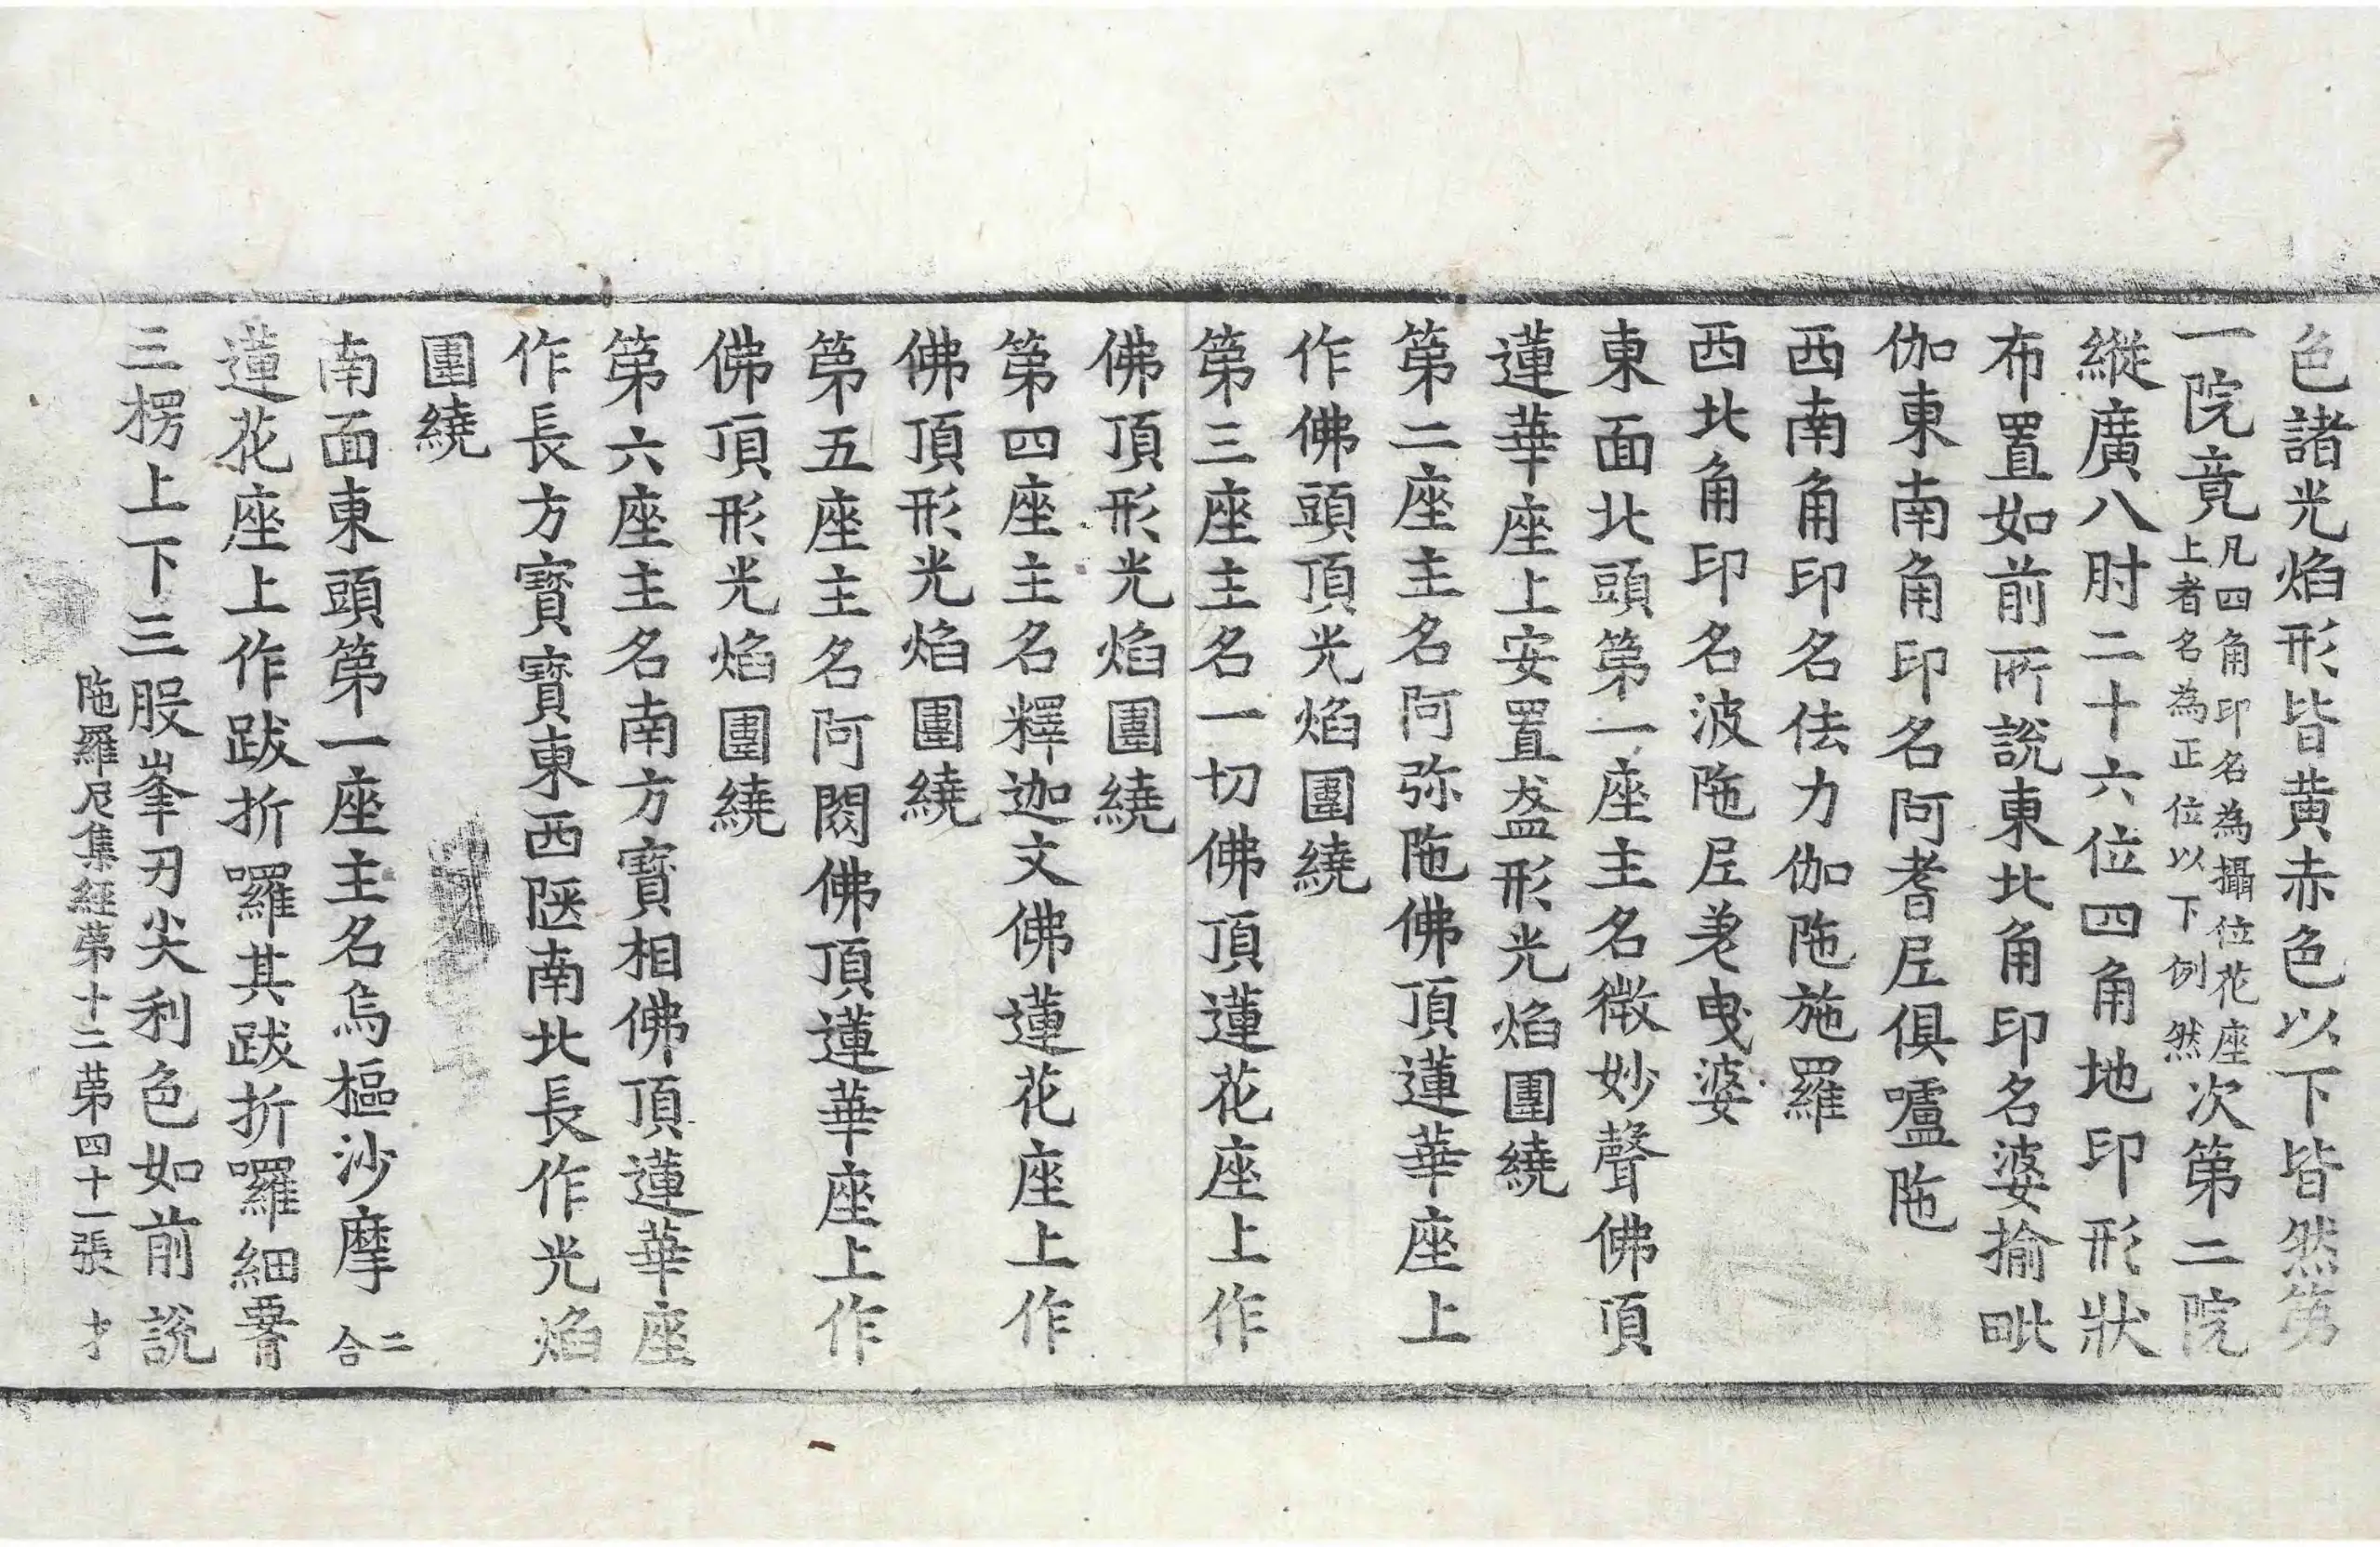 色諸光焰形皆黃赤色以下皆然第
一院竟凡四角印名為攝位花座上者名為正位以下例然次第二院
縱廣八肘二十六位四角地印形狀
布置如前所說東北角印名婆揄毗
伽東南角印名阿耆尼俱嚧陁
西南角印名佉力伽陁施羅
西北角印名波陁尼羙曳婆
東面北頭第一座主名微妙聲佛頂
蓮華座上安置盋形光焰團繞
第二座主名阿弥陁佛頂蓮華座上
作佛頭頂光焰團繞
第三座主名一切佛頂蓮花座上作
佛頂形光焰團繞
第四座主名釋迦文佛蓮花座上作
佛頂形光焰團繞
第五座主名阿閦佛頂蓮華座上作
佛頂形光焰團繞
第六座主名南方寶相佛頂蓮華座
作長方寶寶東西陿南北長作光焰
團繞
南面東頭第一座主名烏樞沙摩二合
蓮花座上作跋折囉其跋折囉細署
三楞上下三股峯刃尖利色如前說
陁羅尼集經第十二第四十一張 才